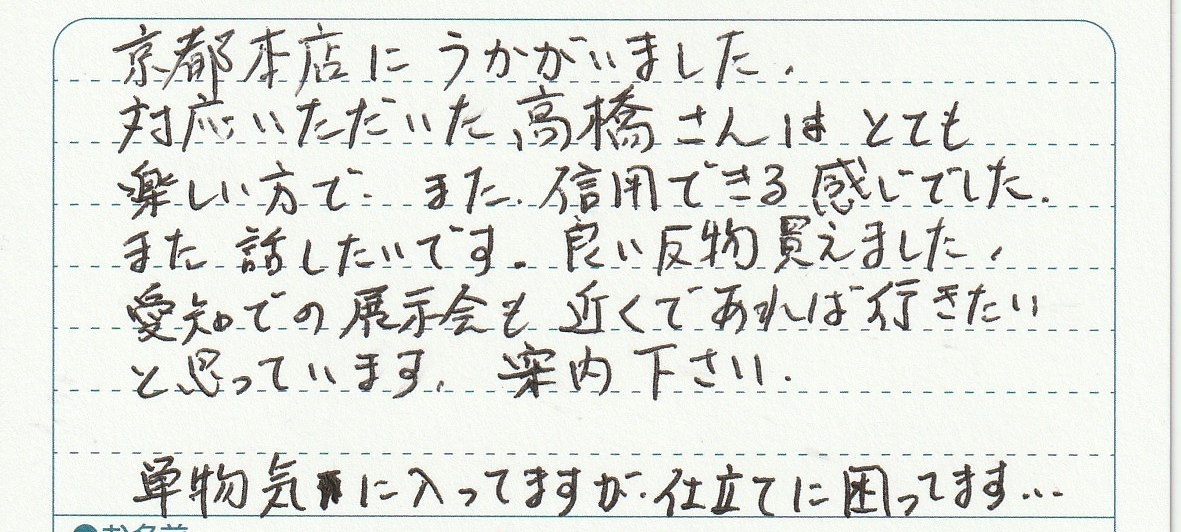 京都本店にうかがいました.
対応いただいた高橋さんはとても
楽しい方で.また.信用できる感じでした.
また話したいです。良い反物買えました,
愛知での展示会も近くであれば行きたい
と思っています.案内下さい.
単物気に入ってますが.仕立てに困ってます...